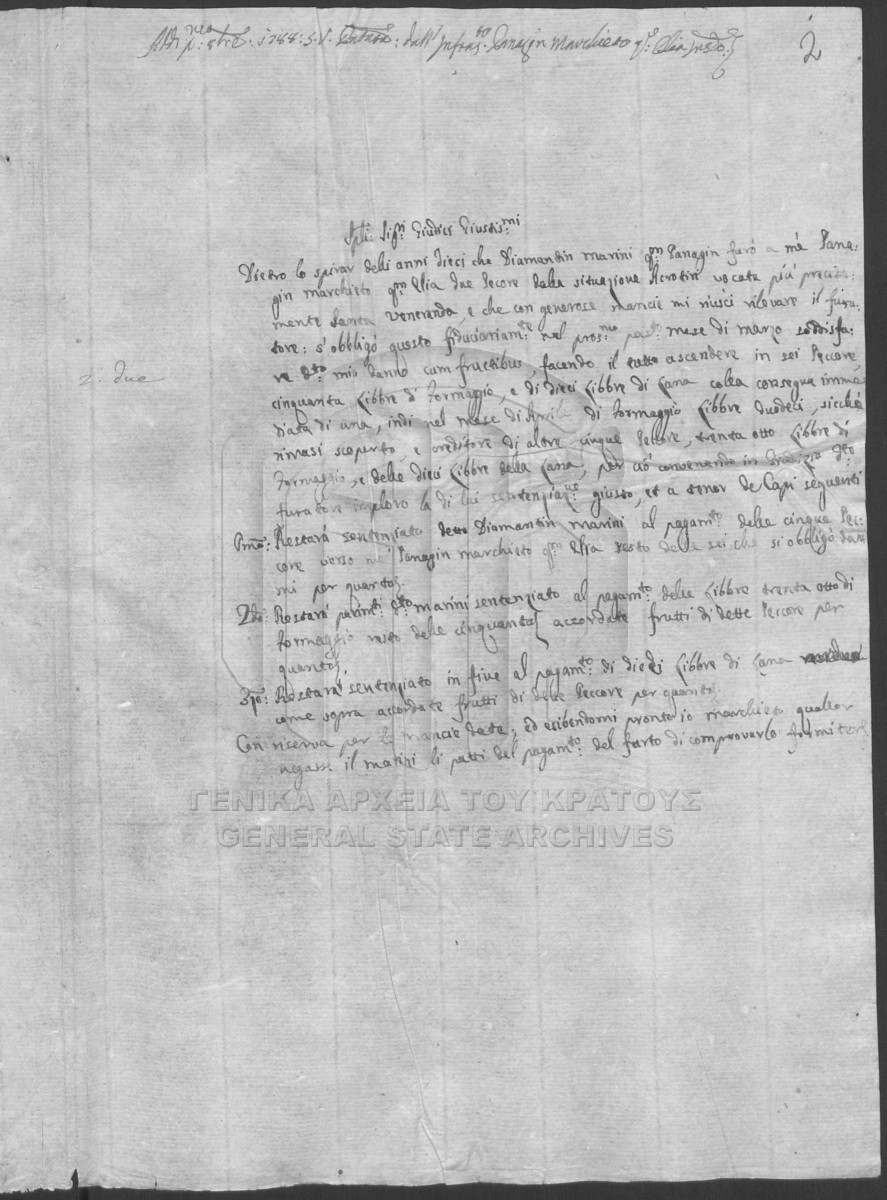 Adi p.mo 8bre 1788: S.V. dall' Infras.to Panagin Marchieto q.m Elia
2
Sp.li Sig.ri Giudici Giustis.mi
Dietro lo spirar delli anni dieci che Diamantin Marini q.m Panagin furò a me Pana:
gin Marchieto q.m Elia due Pecore dalla situazione Acrotiri vocata più precisa:
mente Santa Veneranda, e che con generose mancie mi riuscì rilevare il fura:
tore: s'obbligò questo fiduciariam.te nel pros.mo pas.to mese di marzo soddisfa:
re d.to mio danno cum fructibus, facendo il tutto ascendere in sei Peccore,
2. due
cinquanta Libbre di Formaggio, e di dieci Libbre di Lana colla consegna imme:
diata di una, indi nel mese di Aprile di Formaggio Libbre duodeci, sicchè
rimasi scoperto, e creditore di altre cinque Peccore, trenta otto Libbre di
Formaggio, e delle dieci Libbre della Lana, per ciò convenendo in Giudizio d.to
furatore imploro la di lui sentenziaz.ne giusto, et a tenor de Capi seguenti
Pmo: Restarà sentenziato detto Diamantin Marini al pagam.to delle cinque Pec:
core verso me Panagin Marchieto q.m Elia resto delle sei che si obbligò dar:
mi per quanto
2do: Restarà parim.ti d.to Marini sentenziato al pagam.to delle Libbre trenta otto di
formaggio resto delle cinquanta accordate frutti di dette Peccore per
quanto
3zo: Restarà sentenziato in fine al pagam.to di dieci Libbre di Lana
come sopra accordate frutti di dette Peccore per quanto
Con riserva per le mancie dette, ed esibendomi pronto io Marchieto qualor
negasse il Marini li patti del pagam.to del furto di comprovarlo
ΓΕΝΙΚΑ ΑΡΧΕΙΑ ΤΟΥ ΚΡΑΤΟΥΣ
GENERAL STATE ARCHIVES